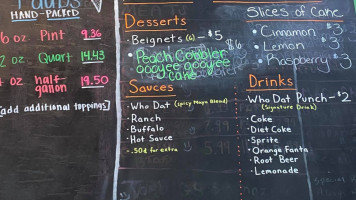 HAND-PACKED
6 oz Pint 9.36
2 oz Quart 14.43
4 oz half gallon 19.50
[add additional toppings]
Desserts
• Beignets (6) - $5
• Peach Cobbler $6
ooeyee gooeyee
cake
Slices of Cake
• Cinnamon $3
• Lemon $3
• Raspberry $3
Sauces
• Who Dat (Spicy Mayo Blend)
• Ranch
• Buffalo
• Hot Sauce
- .50¢ for extra
Drinks
Who Dat Punch - $2
(Signature Drink)
• Coke
• Diet Coke
• Sprite
• Orange Fanta
• Root Beer
• Lemonade